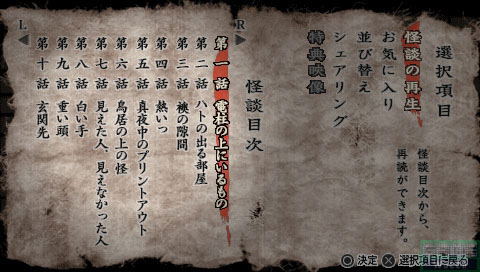 選択項目
怪談の再生
お気に入り
並び替え
シェアリング
特典映像
怪談目次から、
再読ができます。
R
怪談目次
第一話 電柱の上にいるもの
第二話 ハトの出る部屋
第三話 襖の隙間
第四話 熱いっ
第五話 真夜中のプリントアウト
第六話 鳥居の上の怪
第七話 見えた人、見えなかった人
第八話 白い手
第九話 重い頭
第十話 玄関先
L
決定 選択項目に戻る